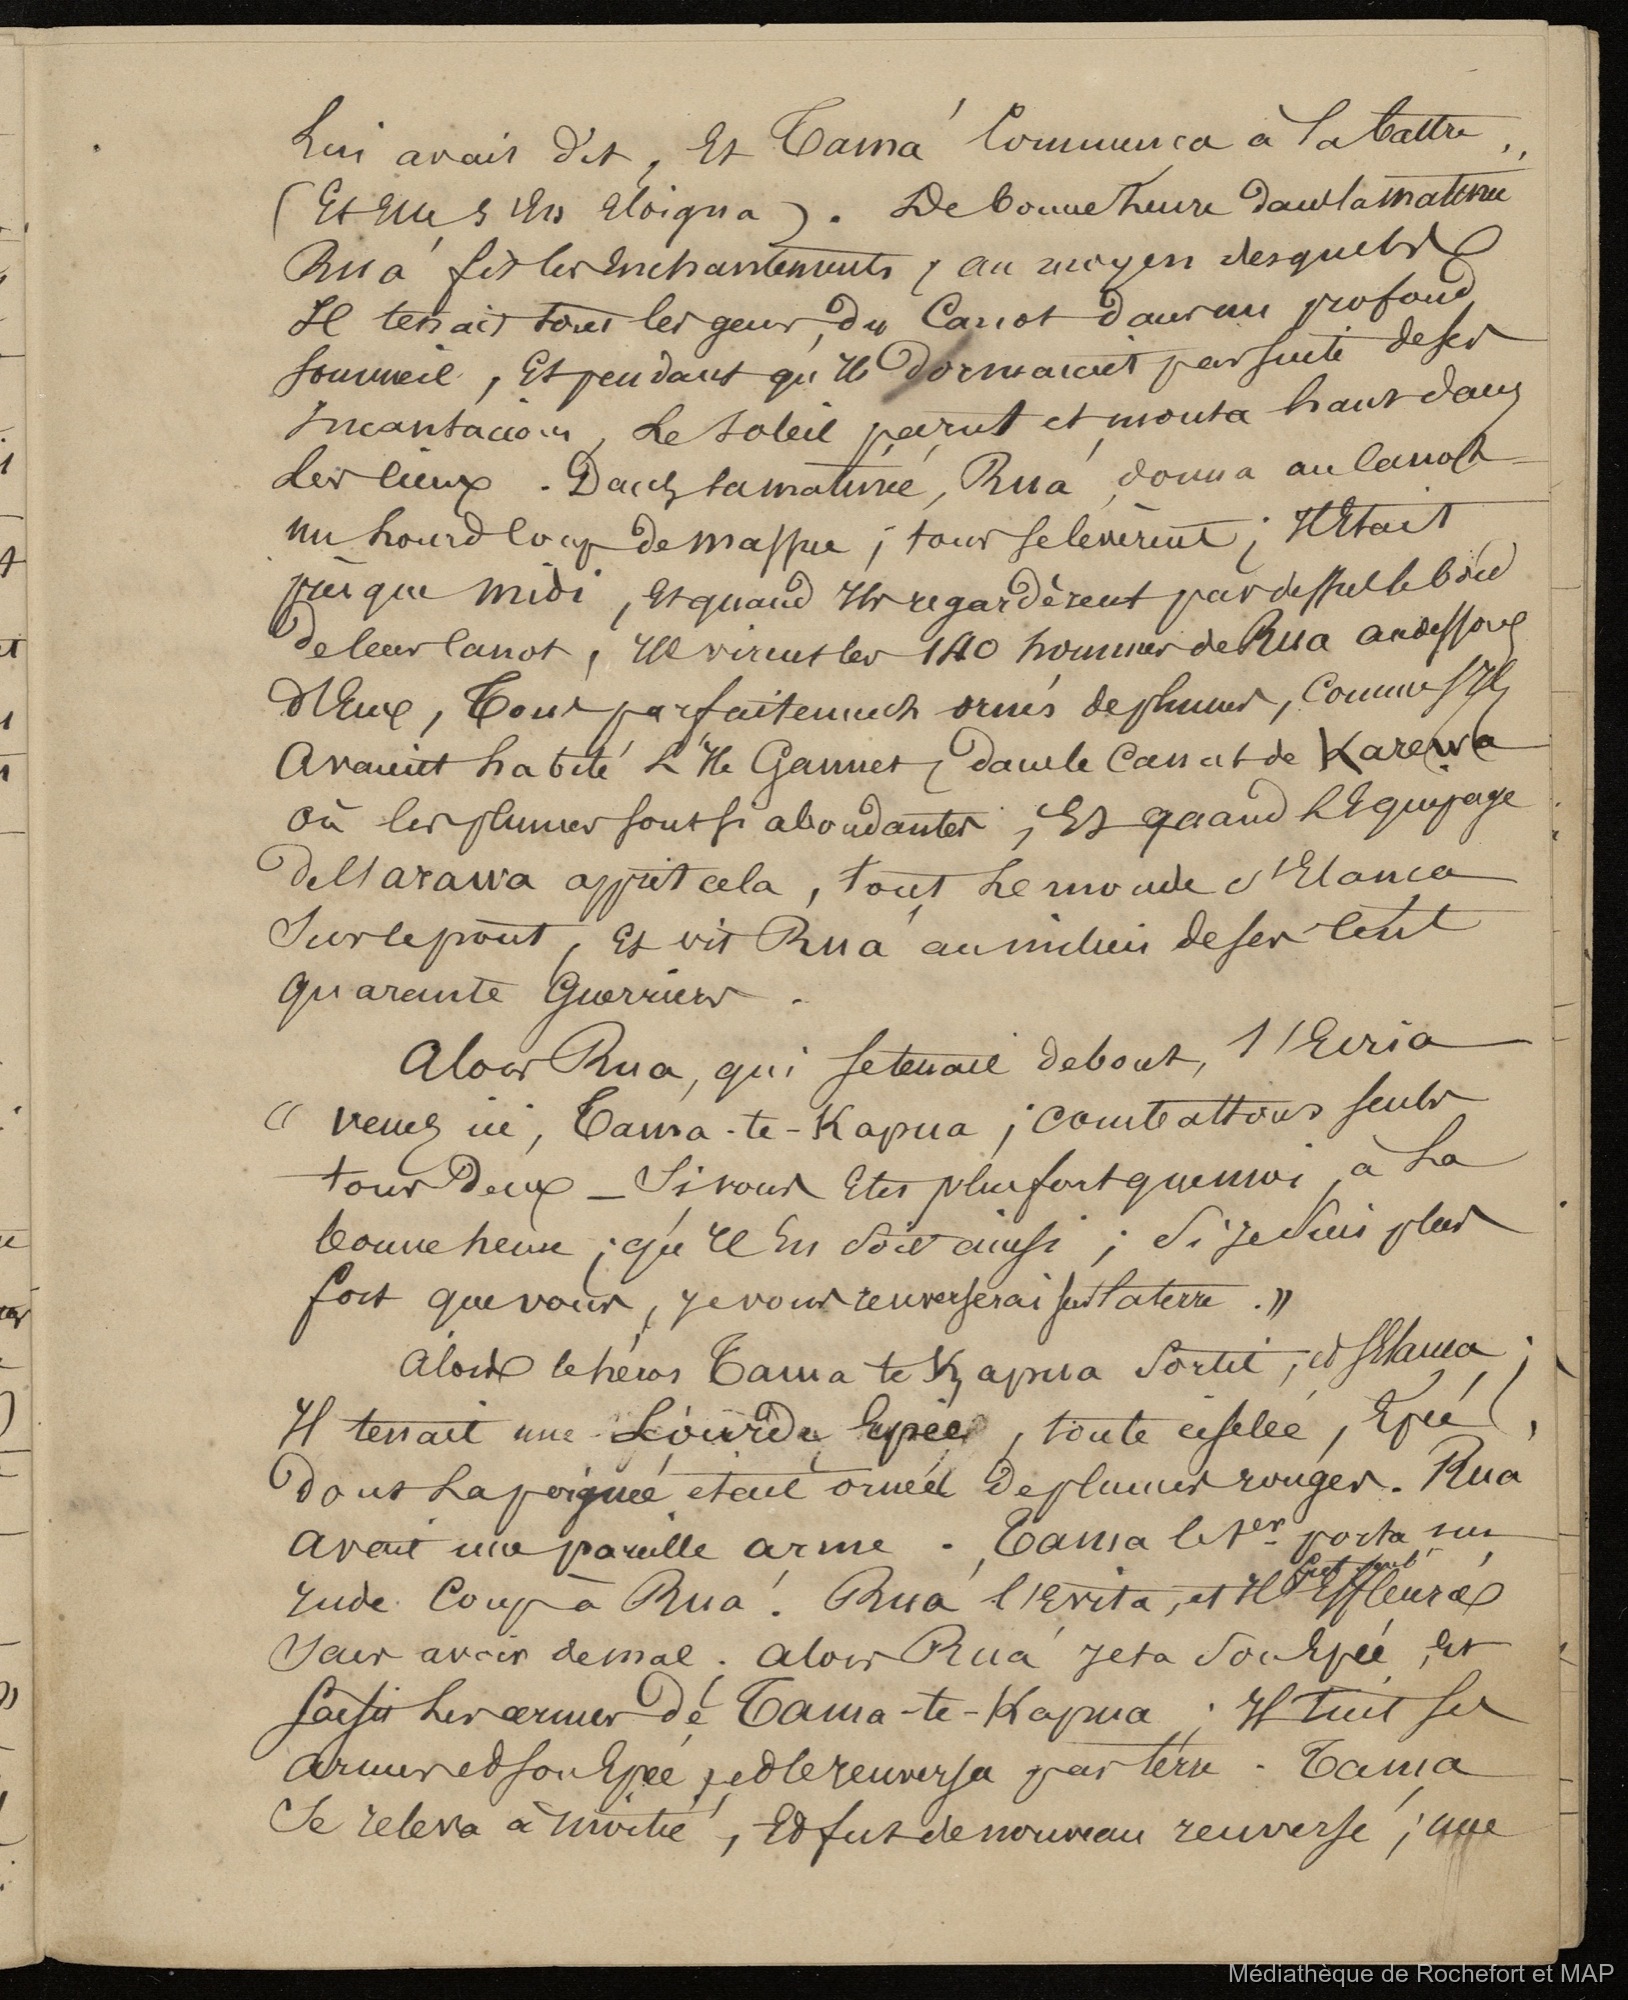 Lui avait dit, Et Tama Commença à la battre,,
(Et Elle s'En Eloigna). De bonne heure dans la matinée
Rua fit les Enchantements, au moyen desquels
Il tenait tous les gens du Canot dans un profond
Sommeil, Et pendant qu'Ils dormaient par suite de ses
Incantations, Le soleil parut et monta haut dans
Les Cieux. Dans la matinée, Rua donna au Canot
un Lourd Coup de massue; tous se levèrent; Il Etait
près que midi, Et quand Ils regardèrent par dessus le bord
de leur Canot, Ils virent les 140 hommes de Rua au dessous
d'Eux, Tous parfaitement ornés de plumes, Comme s'Ils
Avaient habité L'Ile Gannet, dans le Canal de Karewa
où les plumes sont si abondantes, Et quand l'Equipage
De l'arawa apprit cela, tout Le monde s'Elança
Sur le pont, Et vit Rua au milieu de ses Cent
quarante Guerriers.
Alors Rua, qui se tenait debout, s'Ecria
« venez ici, Tama-te-Kapua; combattons seuls
tous Deux _ Si vous Etes plus fort que moi, à La
bonne heure; qu'Il En Soit ainsi; Si je Suis plus
fort que vous, je vous renverserai sur la terre. »
Alors le héros Tama te Kapua Sortit, et s'Elança;
Il tenait une Lourde Epée, toute ciselée, Epée
Dont La poignée était ornée De plumes rouges. Rua
avait une pareille arme. Tama le 1er porta un
rude Coup à Rua. Rua l'Evita, et Il fut seult Effleuré
Sans avoir de mal. Alors Rua jeta Son Epée, Et
saisit Les armes de Tama-te-Kapua; Il tint ses
armes et son Epée, et le renversa par terre. Tama
Se releva à moitié, Et fut de nouveau renversé; une
Médiathèque de Rochefort et MAP